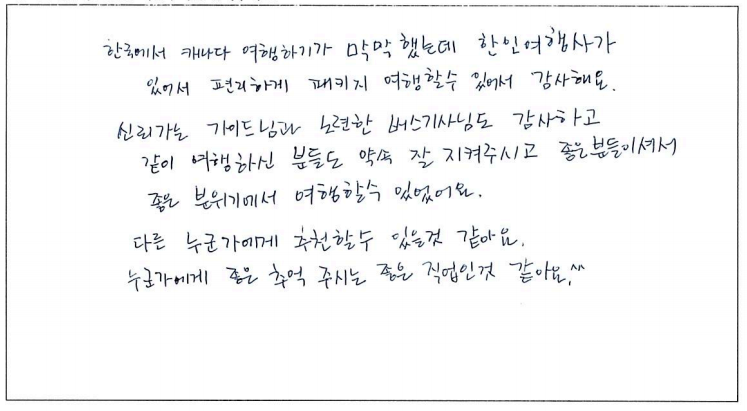 한국에서 캐나다 여행하기가 막막했는데 한인여행사가
있어서 편리하게 패키지 여행할수 있어서 감사해요.
신뢰가는 가이드님과 노련한 버스기사님도 감사하고
같이 여행하신 분들도 약속 잘 지켜주시고 좋은분들이셔서
좋은 분위기에서 여행할수 있었어요.
다른 누군가에게 추천할수 있을것 같아요.
누군가에게 좋은 추억 주시는 좋은 직업인것 같아요.^^